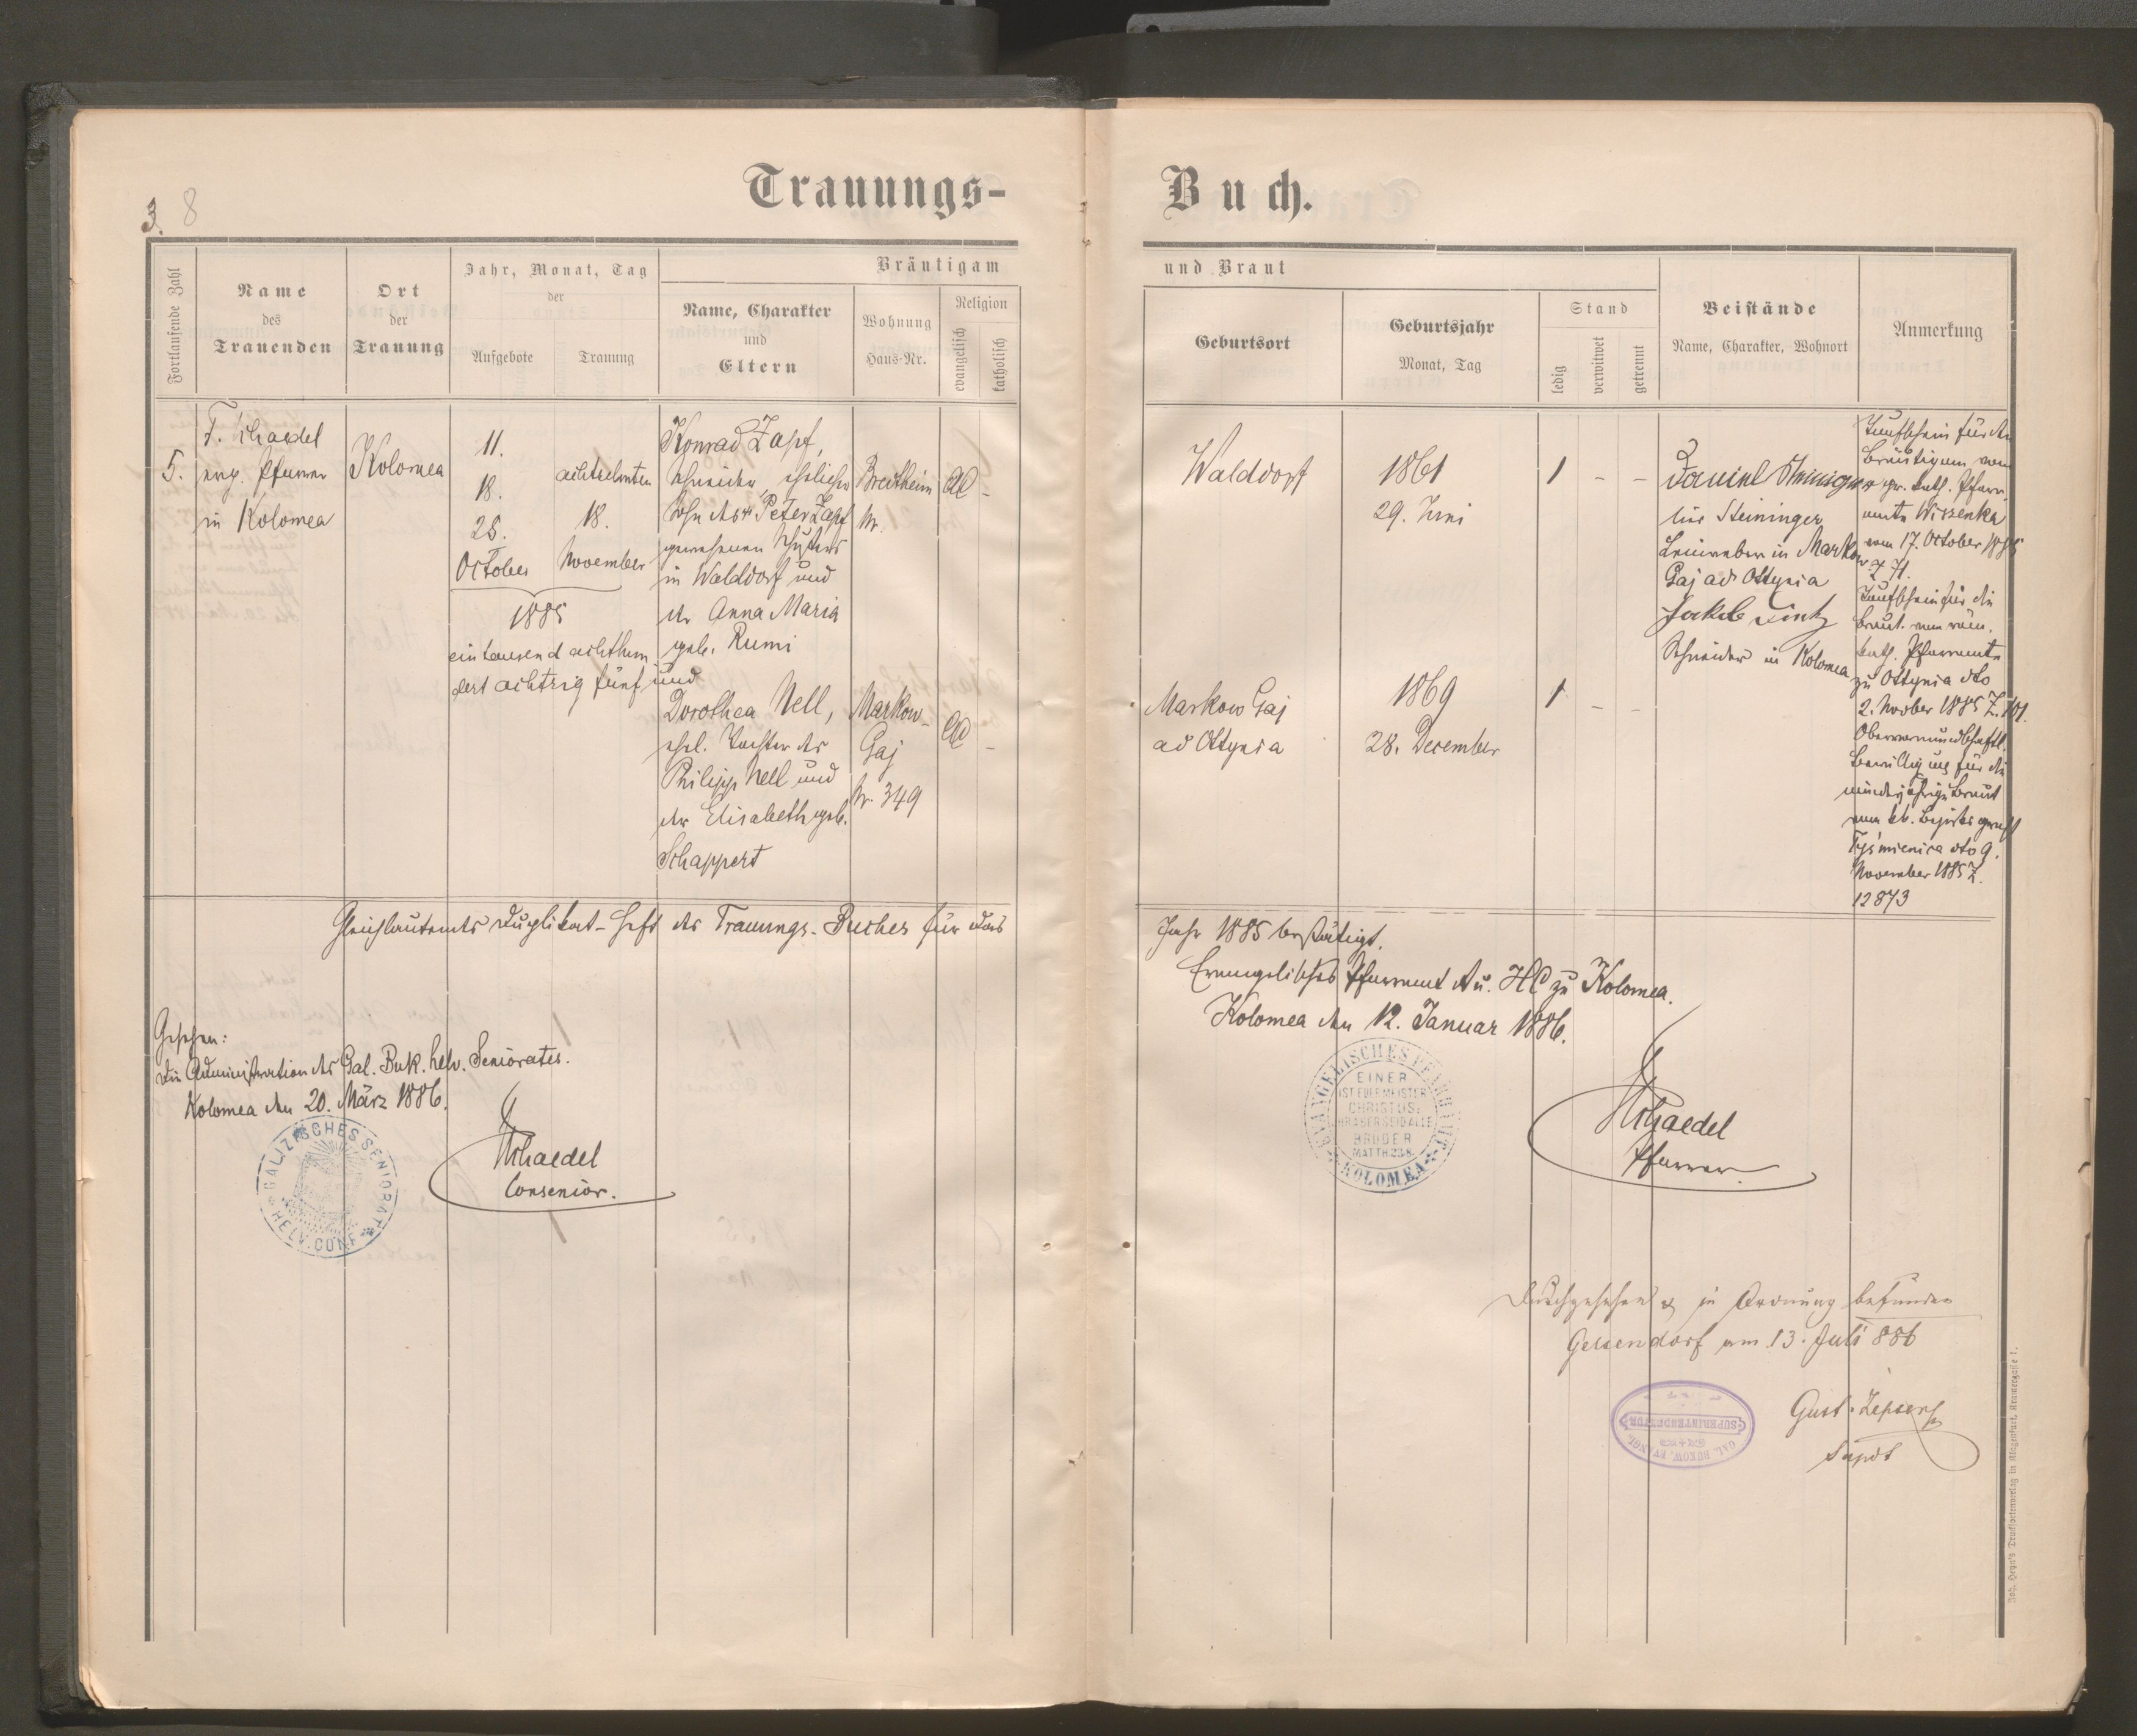 Trauungs-
Buch.
3. 8
Fortlaufende Zahl
Name
des
Trauenden
Ort
der
Trauung
Jahr, Monat, Tag
der
Aufgebote
Trauung
Bräutigam
Name, Charakter
und
Eltern
Wohnung
Haus-Nr.
Religion
evangelisch
katholisch
und Braut
Geburtsort
Geburtsjahr
Monat, Tag
Stand
ledig
verwitwet
getrennt
Beistände
Name, Charakter, Wohnort
Anmerkung
5.
evg. Pfarrer
in Kolomea
Kolomea
11.
18.
28.
October
achtzehnten
18.
November
1885
ein tausend achthun
dert achtzig fünf
Konrad Zapf,
Schneider, ehelicher
Sohn des Peter Zapf
gewesenen Schusters
in Walddorf und
der Anna Maria
geb. Rumi
und
Dorothea Nell,
ehel. Tochter des
Philipp Nell und
der Elisabeth geb.
Schappert
Bredtheim
Nr.
Markow-
Gaj
Nr. 349
Walddorf
1861
29. Juni
1 - -
Markow Gaj
ad Ottynia
1869
28. December
1 - -
Daniel Steininger
Steininger
Leinweber in Markow
Gaj ad Ottynia
Jakob
Schneider in Kolomea
Taufschein für den
Bräutigam vom
gr. kath. Pfarr-
amte Wiszenka
vom 17. October 1885
Z 71.
Taufschein für die
Braut vom röm.
kath. Pfarramte
zu Ottynia dto
2. Novber 1885 Z. 101.
Obervormundschaftl.
Bewilligung für die
minderjährige Braut
vom kk. Bezirksgericht
Tyśmienica dto 9.
November 1885 Z.
12873
Gleichlautendes Duplikat-Heft des Trauungs-Buches für das
Jahr 1885 bestätigt.
Evangelisches Pfarramt A u. HC zu Kolomea.
Kolomea den 12. Januar 1886.
EVANGELISCHES PFARRAMT
KOLOMEA
EINER
IST EUER MEISTER
CHRISTUS;
IHR ABER SEID ALLE
BRÜDER
MATTH 23.8.
Schaedel
Pfarrer
Gesehen:
Die Administration des Gal. Buk. helv. Seniorates.
Kolomea den 20. März 1886.
GALIZISCHES SENIORAT
HELV. CONF.
Schaedel
Consenior.
Durchgesehen & in Ordnung befunden
Gelsendorf am 13. Juli 886
GAL. BUKOW. EVANGL.
SUPERINTENDENTUR
Gust.
Supdt
Joh. Heyn's Drucksortenverlag in Klagenfurt, Kramergasse 1.